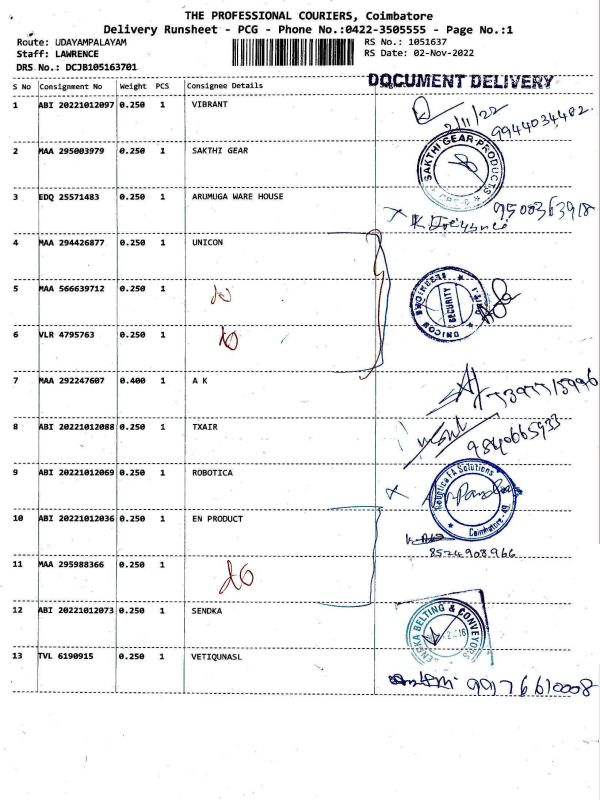 THE PROFESSIONAL COURIERS, Coimbatore
Delivery Runsheet - PCG - Phone No.:0422-3505555 - Page No.:1
Route: UDAYAMPALAYAM
RS No.: 1051637
Staff: LAWRENCE
RS Date: 02-Nov-2022
DRS No.: DCJB105163701
DOCUMENT DELIVERY
S No Consignment No Weight PCS Consignee Details
1 ABI 20221012097 0.250 1 VIBRANT
2/11/22
9944034402
2 MAA 295003979 0.250 1 SAKTHI GEAR
SAKTHI GEAR PRODUCTS
3 EDQ 25571483 0.250 1 ARUMUGA WARE HOUSE
9500363918
4 MAA 294426877 0.250 1 UNICON
5 MAA 566639712 0.250 1
UNICON ENGINEERS
SECURITY
6 VLR 4795763 0.250 1
7 MAA 292247607 0.400 1 A K
8 ABI 20221012088 0.250 1 TXAIR
9840665933
9 ABI 20221012069 0.250 1 ROBOTICA
Robotica FA Solutions
Coimbatore
10 ABI 20221012036 0.250 1 EN PRODUCT
8574908966
11 MAA 295988366 0.250 1
12 ABI 20221012073 0.250 1 SENDKA
SENGKA BELTING & CONVEYORS
13 TVL 6190915 0.250 1 VETIQUNASL
99176610008